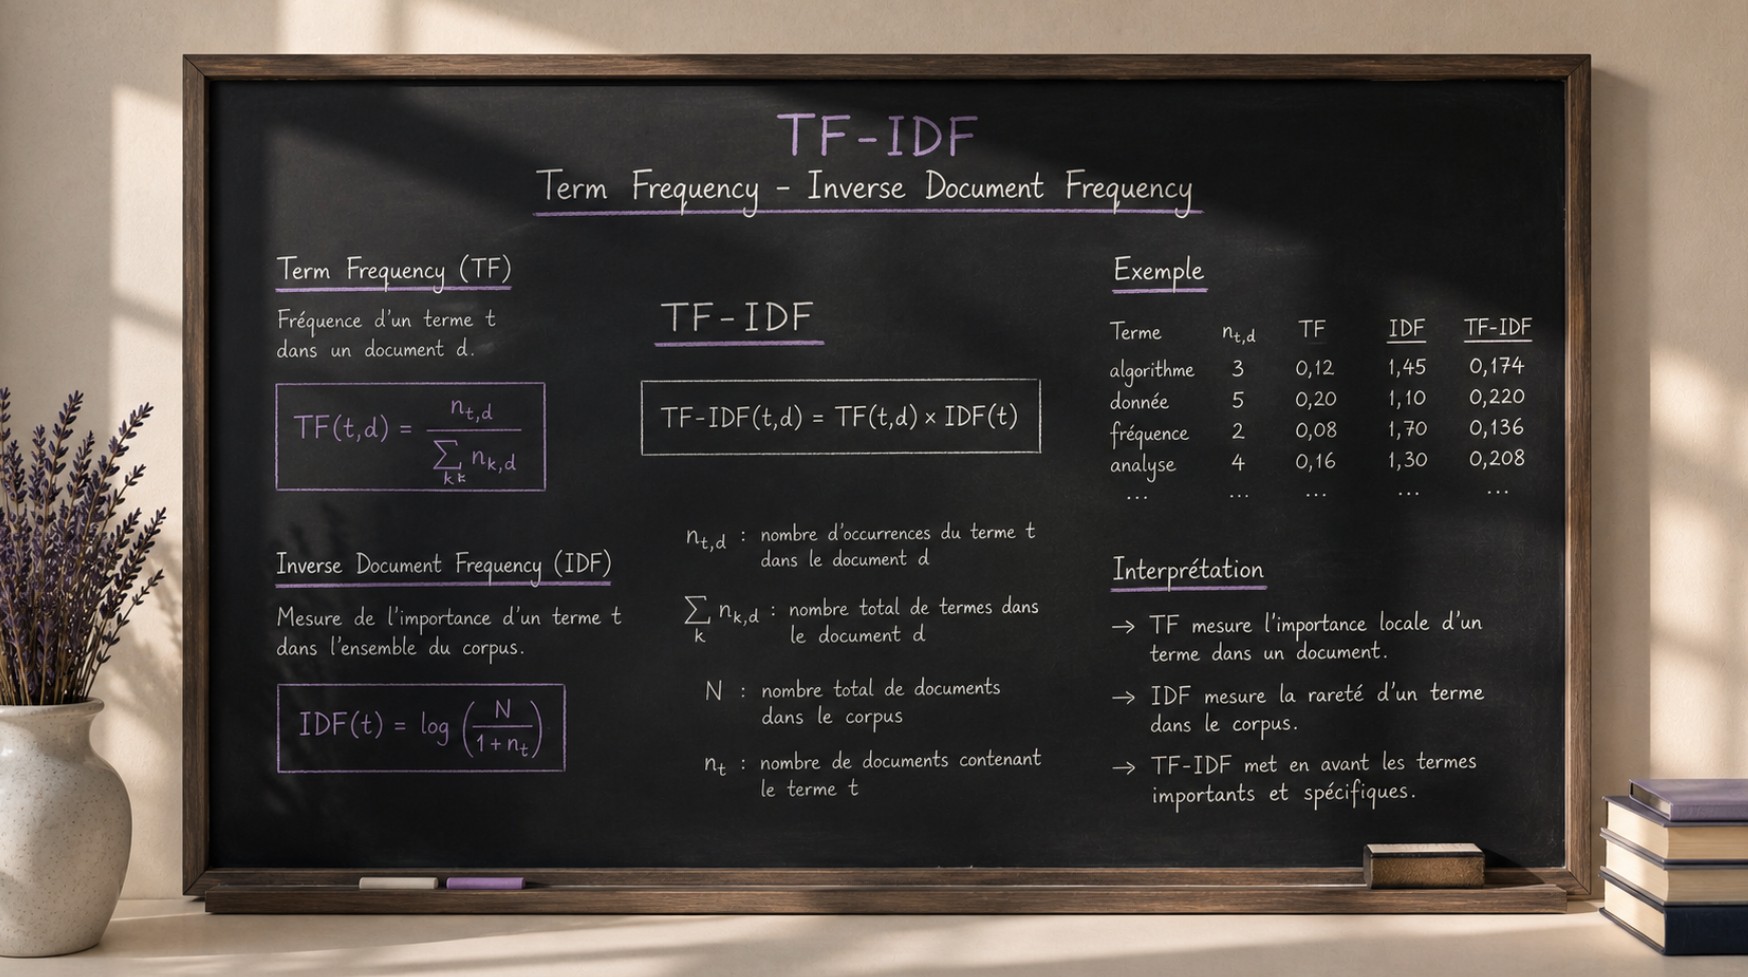 TF-IDF
Term Frequency - Inverse Document Frequency
Term Frequency (TF)
Fréquence d'un terme t
dans un document d.
TF(t,d) = n_{t,d} / ∑_k n_{k,d}
Inverse Document Frequency (IDF)
Mesure de l'importance d'un terme t
dans l'ensemble du corpus.
IDF(t) = log (N / (1 + n_t))
TF-IDF
TF-IDF(t,d) = TF(t,d) × IDF(t)
n_{t,d} : nombre d'occurrences du terme t
dans le document d
∑_k n_{k,d} : nombre total de termes dans
le document d
N : nombre total de documents
dans le corpus
n_t : nombre de documents contenant
le terme t
Exemple
Terme n_{t,d} TF IDF TF-IDF
algorithme 3 0,12 1,45 0,174
donnée 5 0,20 1,10 0,220
fréquence 2 0,08 1,70 0,136
analyse 4 0,16 1,30 0,208
... ... ... ... ...
Interprétation
→ TF mesure l'importance locale d'un
terme dans un document.
→ IDF mesure la rareté d'un terme
dans le corpus.
→ TF-IDF met en avant les termes
importants et spécifiques.